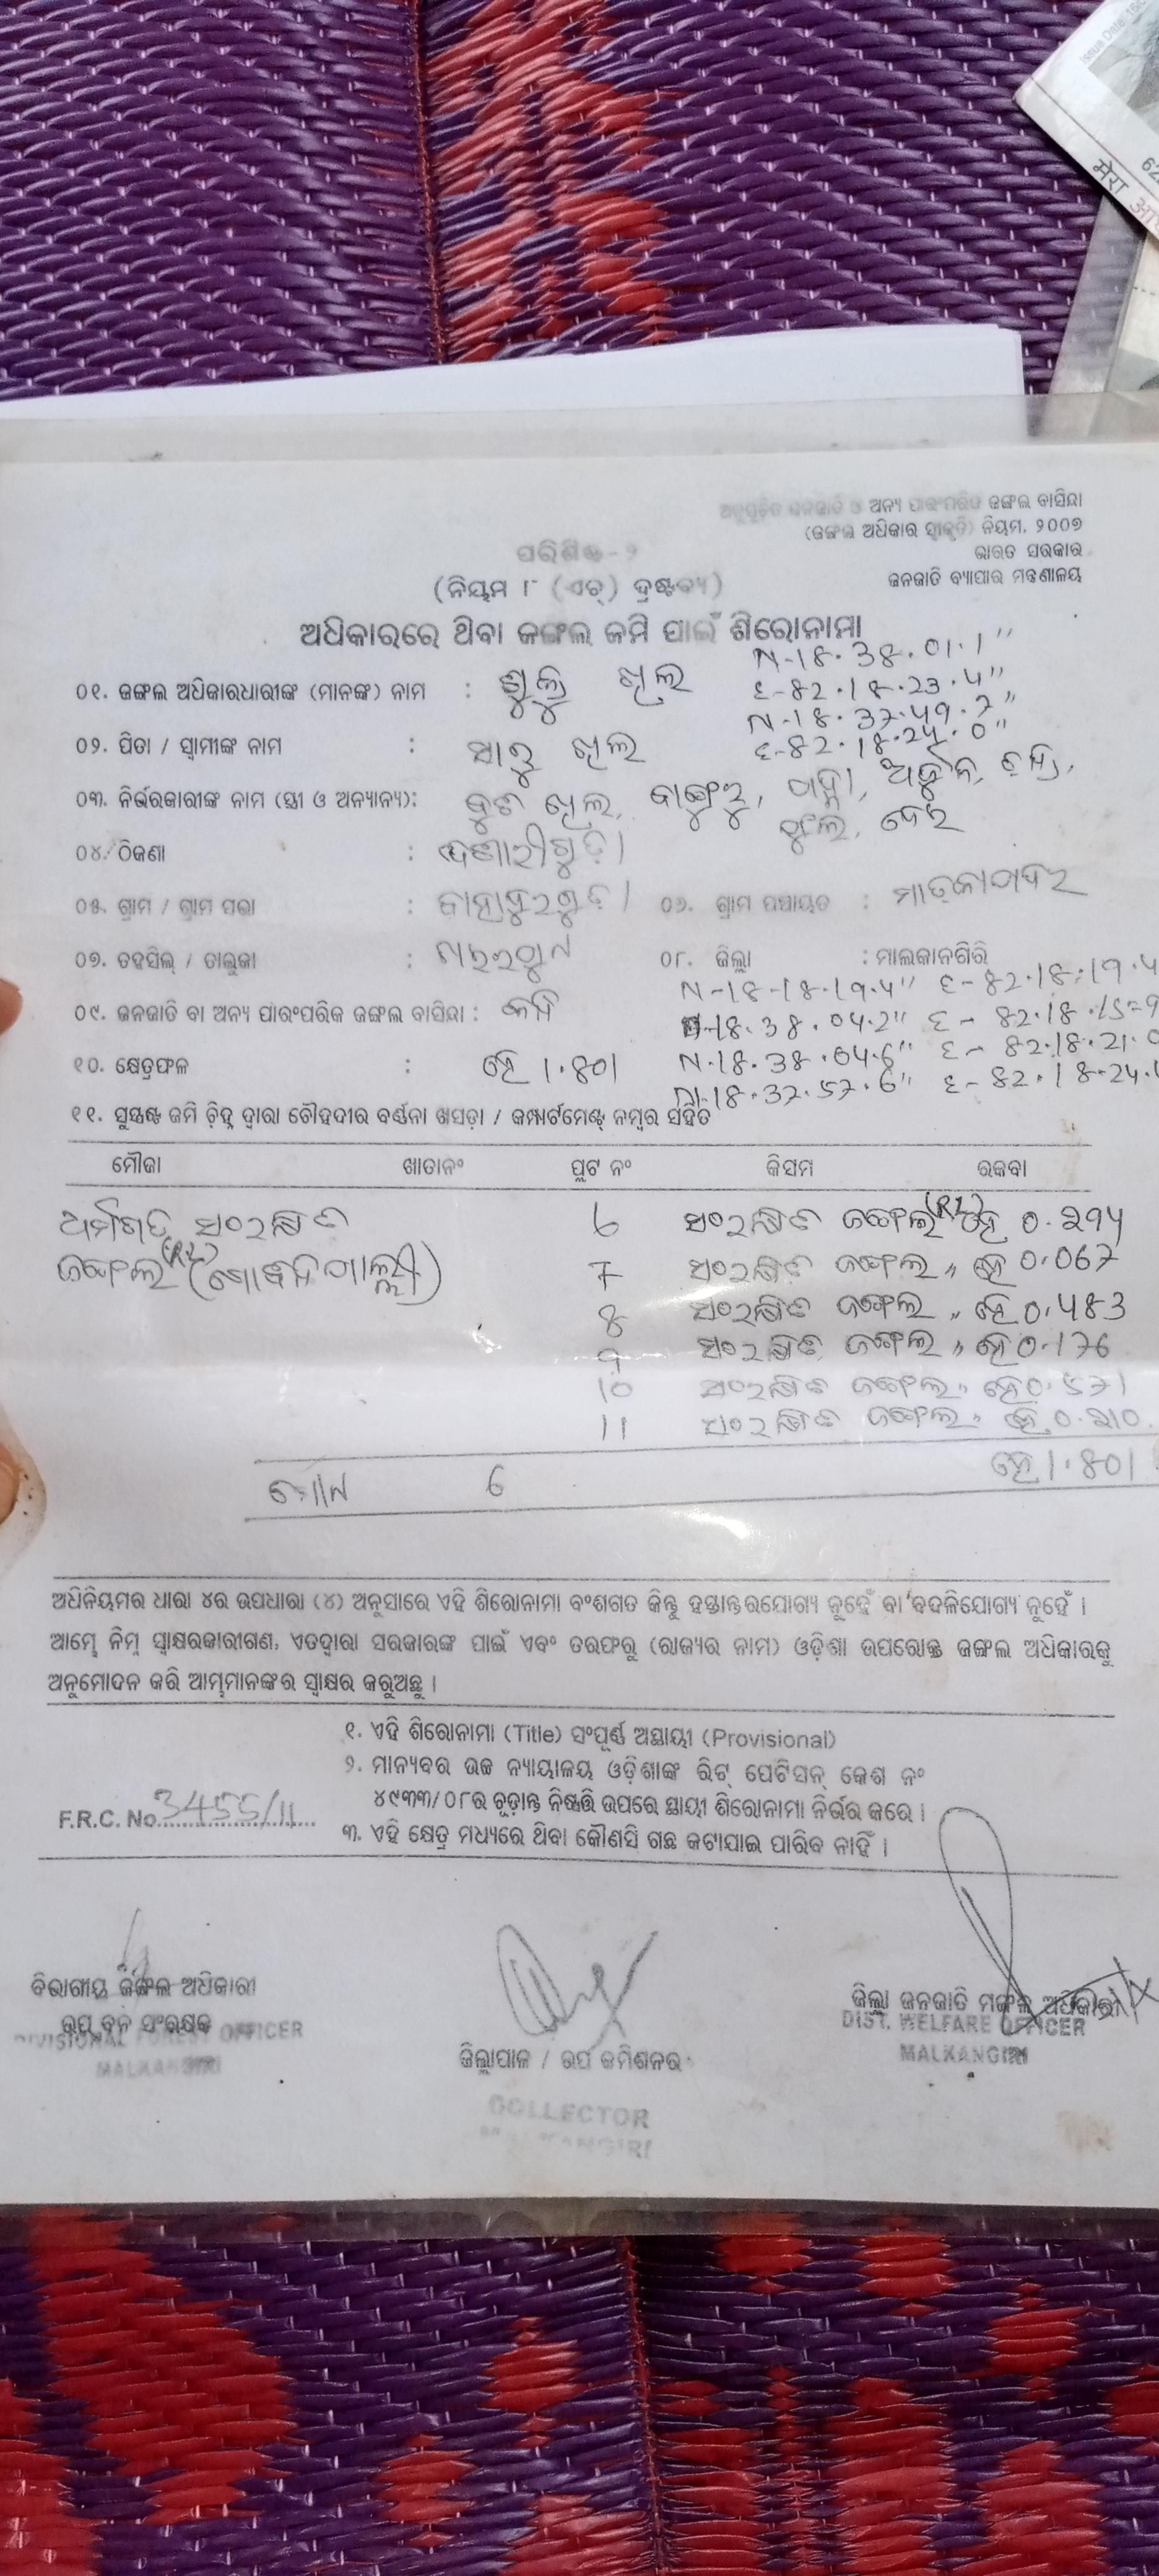 Issue Date:
62
मेरा आ
ଅନୁସୂଚିତ ଜନଜାତି ଓ ଅନ୍ୟ ପାରଂପରିକ ଜଙ୍ଗଲ ବାସିନ୍ଦା
(ଜଙ୍ଗଲ ଅଧିକାର ସ୍ୱୀକୃତି) ନିୟମ, ୨୦୦୭
ଭାରତ ସରକାର
ଜନଜାତି ବ୍ୟାପାର ମନ୍ତ୍ରଣାଳୟ
ପରିଶିଷ୍ଟ - ୨
(ନିୟମ ୮ (ଏଚ୍) ଦ୍ରଷ୍ଟବ୍ୟ)
ଅଧିକାରରେ ଥିବା ଜଙ୍ଗଲ ଜମି ପାଇଁ ଶିରୋନାମା
N-18.38.01.1"
୦୧. ଜଙ୍ଗଲ ଅଧିକାରଧାରୀଙ୍କ (ମାନଙ୍କ) ନାମ : ଖିଲ E-82.18.23.4"
N-18.37.49.7"
୦୨. ପିତା / ସ୍ୱାମୀଙ୍କ ନାମ : ଖିଲ E-82.18.24.0"
୦୩. ନିର୍ଭରକାରୀଙ୍କ ନାମ (ସ୍ତ୍ରୀ ଓ ଅନ୍ୟାନ୍ୟ): ଖିଲ, ଅର୍ଜୁନ,
୦୪. ଠିକଣା :
୦୫. ଗ୍ରାମ / ଗ୍ରାମ ସଭା : ୦୬. ଗ୍ରାମ ପଞ୍ଚାୟତ :
୦୭. ତହସିଲ୍ / ତାଲୁକା : ୦୮. ଜିଲ୍ଲା : ମାଲକାନଗିରି
N-18-18.19.4" E-82.18.19.4
୦୯. ଜନଜାତି ବା ଅନ୍ୟ ପାରଂପରିକ ଜଙ୍ଗଲ ବାସିନ୍ଦା : N-18.38.04.2" E-82.18.15.9
୧୦. କ୍ଷେତ୍ରଫଳ : ହେ 1.801 N-18.38.04.6" E-82.18.21.0
N-18.37.57.6" E-82.18.24.
୧୧. ସୁସ୍ପଷ୍ଟ ଜମି ଚିହ୍ନ ଦ୍ୱାରା ଚୌହଦୀର ବର୍ଣ୍ଣନା ଖସଡ଼ା / କମ୍ପାର୍ଟମେଣ୍ଟ୍ ନମ୍ବର ସହିତ
ମୌଜା ଖାତାନଂ ପ୍ଲଟ ନଂ କିସମ ରକବା
ସଂରକ୍ଷିତ 6 ସଂରକ୍ଷିତ ଜଙ୍ଗଲ ହେ 0.294
ଜଙ୍ଗଲ 7 ସଂରକ୍ଷିତ ଜଙ୍ଗଲ " ହେ 0.067
8 ସଂରକ୍ଷିତ ଜଙ୍ଗଲ " ହେ 0.483
9 ସଂରକ୍ଷିତ ଜଙ୍ଗଲ " ହେ 0.176
10 ସଂରକ୍ଷିତ ଜଙ୍ଗଲ " ହେ 0.571
11 ସଂରକ୍ଷିତ ଜଙ୍ଗଲ " ହେ 0.210
6 ହେ 1.801
ଅଧିନିୟମର ଧାରା ୪ର ଉପଧାରା (୪) ଅନୁସାରେ ଏହି ଶିରୋନାମା ବଂଶଗତ କିନ୍ତୁ ହସ୍ତାନ୍ତରଯୋଗ୍ୟ ନୁହେଁ ବା ବଦଳିଯୋଗ୍ୟ ନୁହେଁ ।
ଆମ୍ଭେ ନିମ୍ନ ସ୍ୱାକ୍ଷରକାରୀଗଣ, ଏତଦ୍ୱାରା ସରକାରଙ୍କ ପାଇଁ ଏବଂ ତରଫରୁ (ରାଜ୍ୟର ନାମ) ଓଡ଼ିଶା ଉପରୋକ୍ତ ଜଙ୍ଗଲ ଅଧିକାରକୁ
ଅନୁମୋଦନ କରି ଆମ୍ଭମାନଙ୍କର ସ୍ୱାକ୍ଷର କରୁଅଛୁ ।
୧. ଏହି ଶିରୋନାମା (Title) ସଂପୂର୍ଣ୍ଣ ଅସ୍ଥାୟୀ (Provisional)
୨. ମାନ୍ୟବର ଉଚ୍ଚ ନ୍ୟାୟାଳୟ ଓଡ଼ିଶାଙ୍କ ରିଟ୍ ପେଟିସନ୍ କେଶ ନଂ
୪୯୩୩/୦୮ର ଚୂଡ଼ାନ୍ତ ନିଷ୍ପତ୍ତି ଉପରେ ସ୍ଥାୟୀ ଶିରୋନାମା ନିର୍ଭର କରେ ।
F.R.C. No. 3455/11
୩. ଏହି କ୍ଷେତ୍ର ମଧ୍ୟରେ ଥିବା କୌଣସି ଗଛ କଟାଯାଇ ପାରିବ ନାହିଁ ।
ବିଭାଗୀୟ ଜଙ୍ଗଲ ଅଧିକାରୀ
ଉପ ବନ ସଂରକ୍ଷକ
DIVISIONAL FOREST OFFICER
MALKANGIRI
ଜିଲ୍ଲାପାଳ / ଉପ କମିଶନର
COLLECTOR
MALKANGIRI
ଜିଲ୍ଲା ଜନଜାତି ମଙ୍ଗଳ ଅଧିକାରୀ
DIST. WELFARE OFFICER
MALKANGIRI